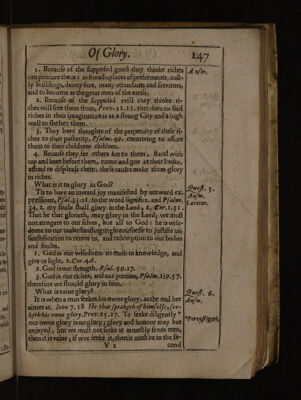 Of Glory. 147
1. Because of the supposed good they thinke riches
can procure them: as friends, places of preferments, cost-
ly buildings, dainty fare, many attendants and servitors,
and to become as the great men of the earth.
2. Because of the supposed evill they thinke ri-
ches will free them from, Prov.18.11. therefore its said
riches in their imagination is as a strong City and a high
wall to shelter them.
3. They have thoughts of the perpetuity of their ri-
ches to their posterity, Psalm.49. contriving to assure
them to their childrens children.
4. Because they see others sue to them, stand with
cap and knee before them, runne and goe at their becke,
affraid to displease them; these causes make them glory
in riches.
What is it to glory in God?
Tis to have an inward joy manifested by outward ex-
pressions, Psal.33.21. so the word signifies. and Psalm.
34.2. my soule shall glory in the Lord, 1. Cor.1.31
That he that glorieth, may glory in the Lord; we must
not arrogate to our selves, but all to God: he is wise-
dome to our understandings: righteousnesse to justifie us;
sanctification to renew us, and redemption to our bodies
and soules.
1. God is our wisedome to teach us knowledge, and
give us light, 2.Cor.4.6.
2. God is our strength, Psal.59.17.
3. God is our riches, and our portion, Psalm.119.57.
therefore we should glory in him.
What is vaine glory?
It is when a man seekes his owne glory, as the end hee
aimes at. John 7.18 He that speaketh of himselfe, see-
keth his owne glory. Prov.25.27. To seeke diligently *
our owne glory is no glory; glory and honour may bee
enjoyed, but we must not seeke it earnestly from men,
then it is vaine; if wee seeke it, then it must be in the se-
V 2 cond
Answ.
Quest. 5.
Answ.
Quest. 6.
Answ.